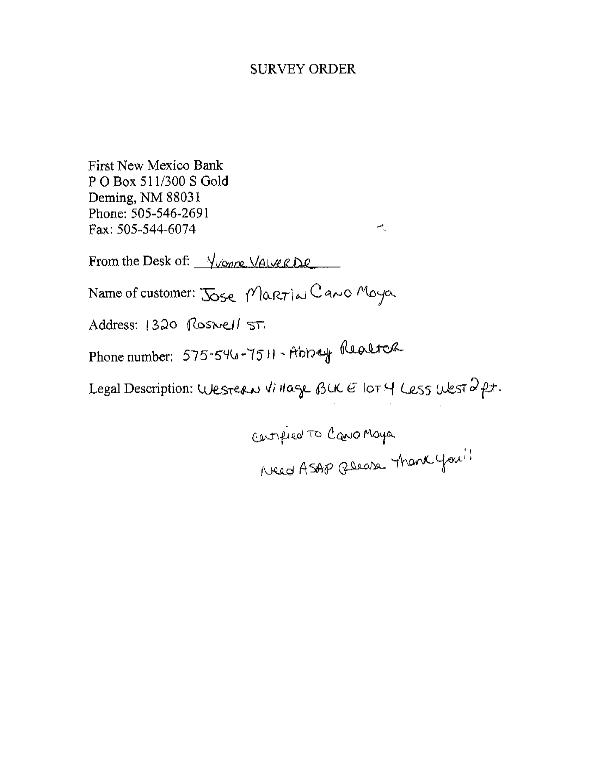 SURVEY ORDER
First New Mexico Bank
P O Box 511/300 S Gold
Deming, NM 88031
Phone: 505-546-2691
Fax: 505-544-6074
From the Desk of: Yvonne Valverde
Name of customer: Jose Martin Cano Moya
Address: 1320 Roswell ST.
Phone number: 575-546-7511 - Abbey Realtor
Legal Description: Western Village BLK E lot 4 Less West 2 ft.
Certified To Cano Moya
Need ASAP Please Thank You!!